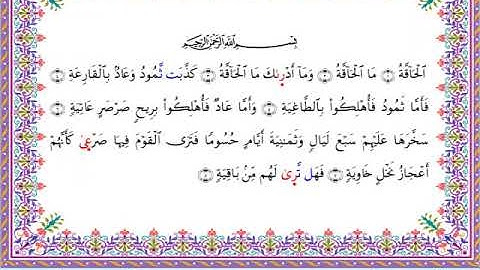 بِسْمِ اللَّهِ الرَّحْمَٰنِ الرَّحِيمِ
الْحَاقَّةُ ۝ مَا الْحَاقَّةُ ۝ وَمَا أَدْرَىٰكَ مَا الْحَاقَّةُ ۝ كَذَّبَت ثَّمُودُ وَعَادٌ بِالْقَارِعَةِ ۝
فَأَمَّا ثَمُودُ فَأُهْلِكُوا بِالطَّاغِيَةِ ۝ وَأَمَّا عَادٌ فَأُهْلِكُوا بِرِيحٍ صَرْصَرٍ عَاتِيَةٍ ۝
سَخَّرَهَا عَلَيْهِمْ سَبْعَ لَيَالٍ وَثَمَٰنِيَةَ أَيَّامٍ حُسُومًا فَتَرَى الْقَوْمَ فِيهَا صَرْعَىٰ كَأَنَّهُمْ
أَعْجَازُ نَخْلٍ خَاوِيَةٍ ۝ فَهَل تَّرَىٰ لَهُم مِّنۢ بَاقِيَةٍ ۝